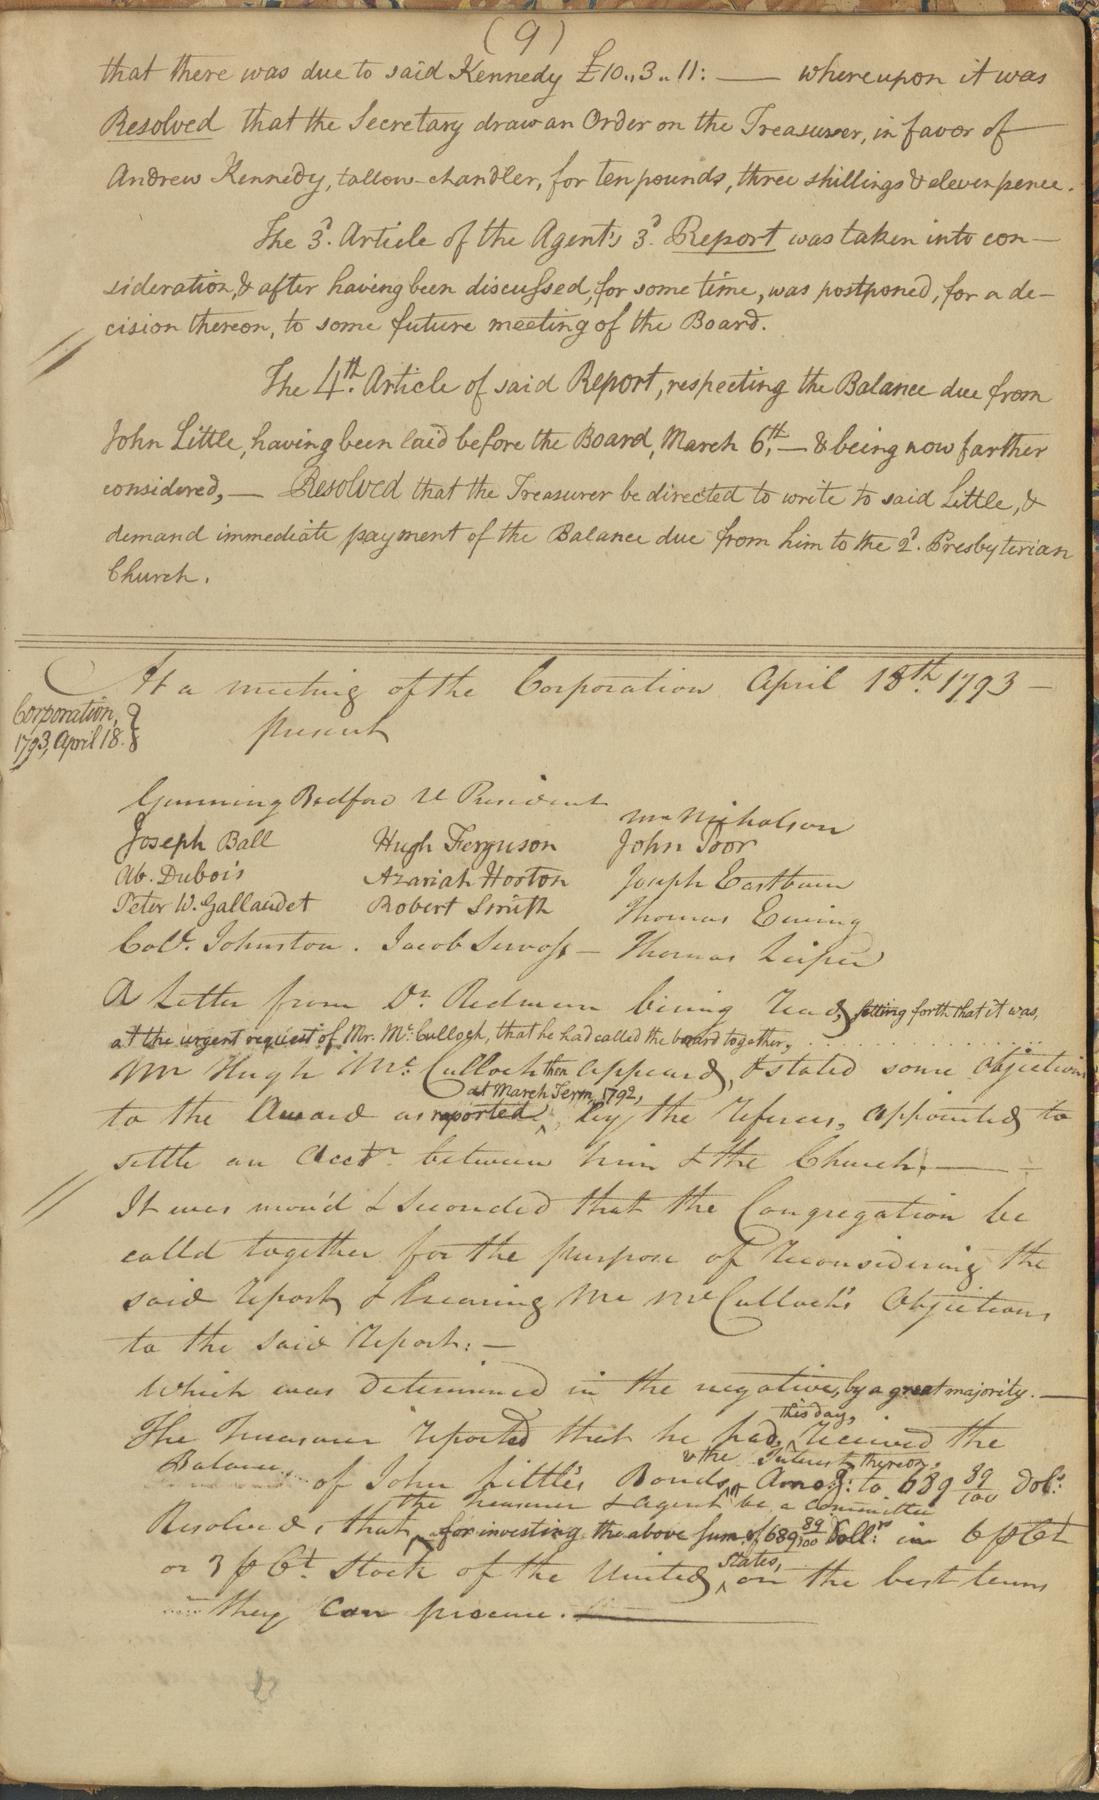 (9)
that there was due to said Kennedy £10.,3.,11: — whereupon it was
Resolved that the Secretary draw an Order on the Treasurer, in favor of
Andrew Kennedy, tallow-chandler, for ten pounds, three shillings & eleven pence.
The 3d. Article of the Agent's 3d. Report was taken into con-
sideration, & after having been discussed, for some time, was postponed, for a de-
cision thereon, to some future meeting of the Board.
The 4th. Article of said Report, respecting the Balance due from
John Little, having been laid before the Board, March 6th, — & being now farther
considered, — Resolved that the Treasurer be directed to write to said Little, &
demand immediate payment of the Balance due from him to the 2d. Presbyterian
Church.
At a meeting of the Corporation April 18th. 1793 —
Corporation,
1793, April 18.
present
Gunning Bedford V President
Mr Nicholson
Joseph Ball Hugh Ferguson John Poor
Ab. Dubois Azariah Horton Joseph Eastburn
Peter W. Gallaudet Robert Smith Thomas Ewing
Colo. Johnston. Jacob Servoss — Thomas Leiper
A Letter from Dr. Redman being read, setting forth that it was,
at the urgent request of Mr. Mc. Culloch, that he had called the board together,
Mr Hugh Mc. Culloch then appeard, & stated some objections
at March Term, 1792,
to the Award as reported, by the referees, appointed to
settle an Acct. between him & the Church. —
It was mov'd & seconded that the Congregation be
calld together for the purpose of reconsidering the
said report & hearing Mr McCulloch's Objections
to the said report: —
Which was determined in the negative, by a great majority. —
this day,
The Treasurer reported that he had, received the
& the Interest thereon,
Balance of John Little's Bonds, Amog. to 689 89/100 Dols:
the Treasurer & agent be a committee
Resolved, that for investing the above sum of 689 89/100 Dollrs: in 6 p Ct
States,
or 3 p Ct. Stock of the United, on the best terms
they can procure. —